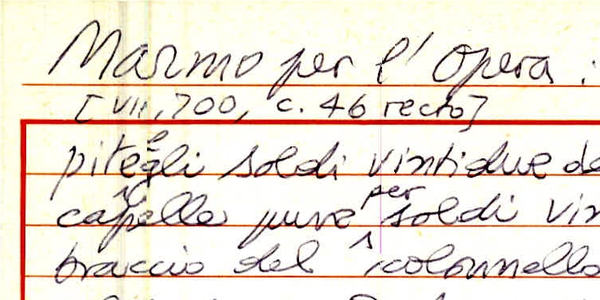 Marmo per l'Opera:
[VII, 700, c. 46 recto]
pitegli soldi vintidue de
capelle pure per soldi vin
braccio del colonnello